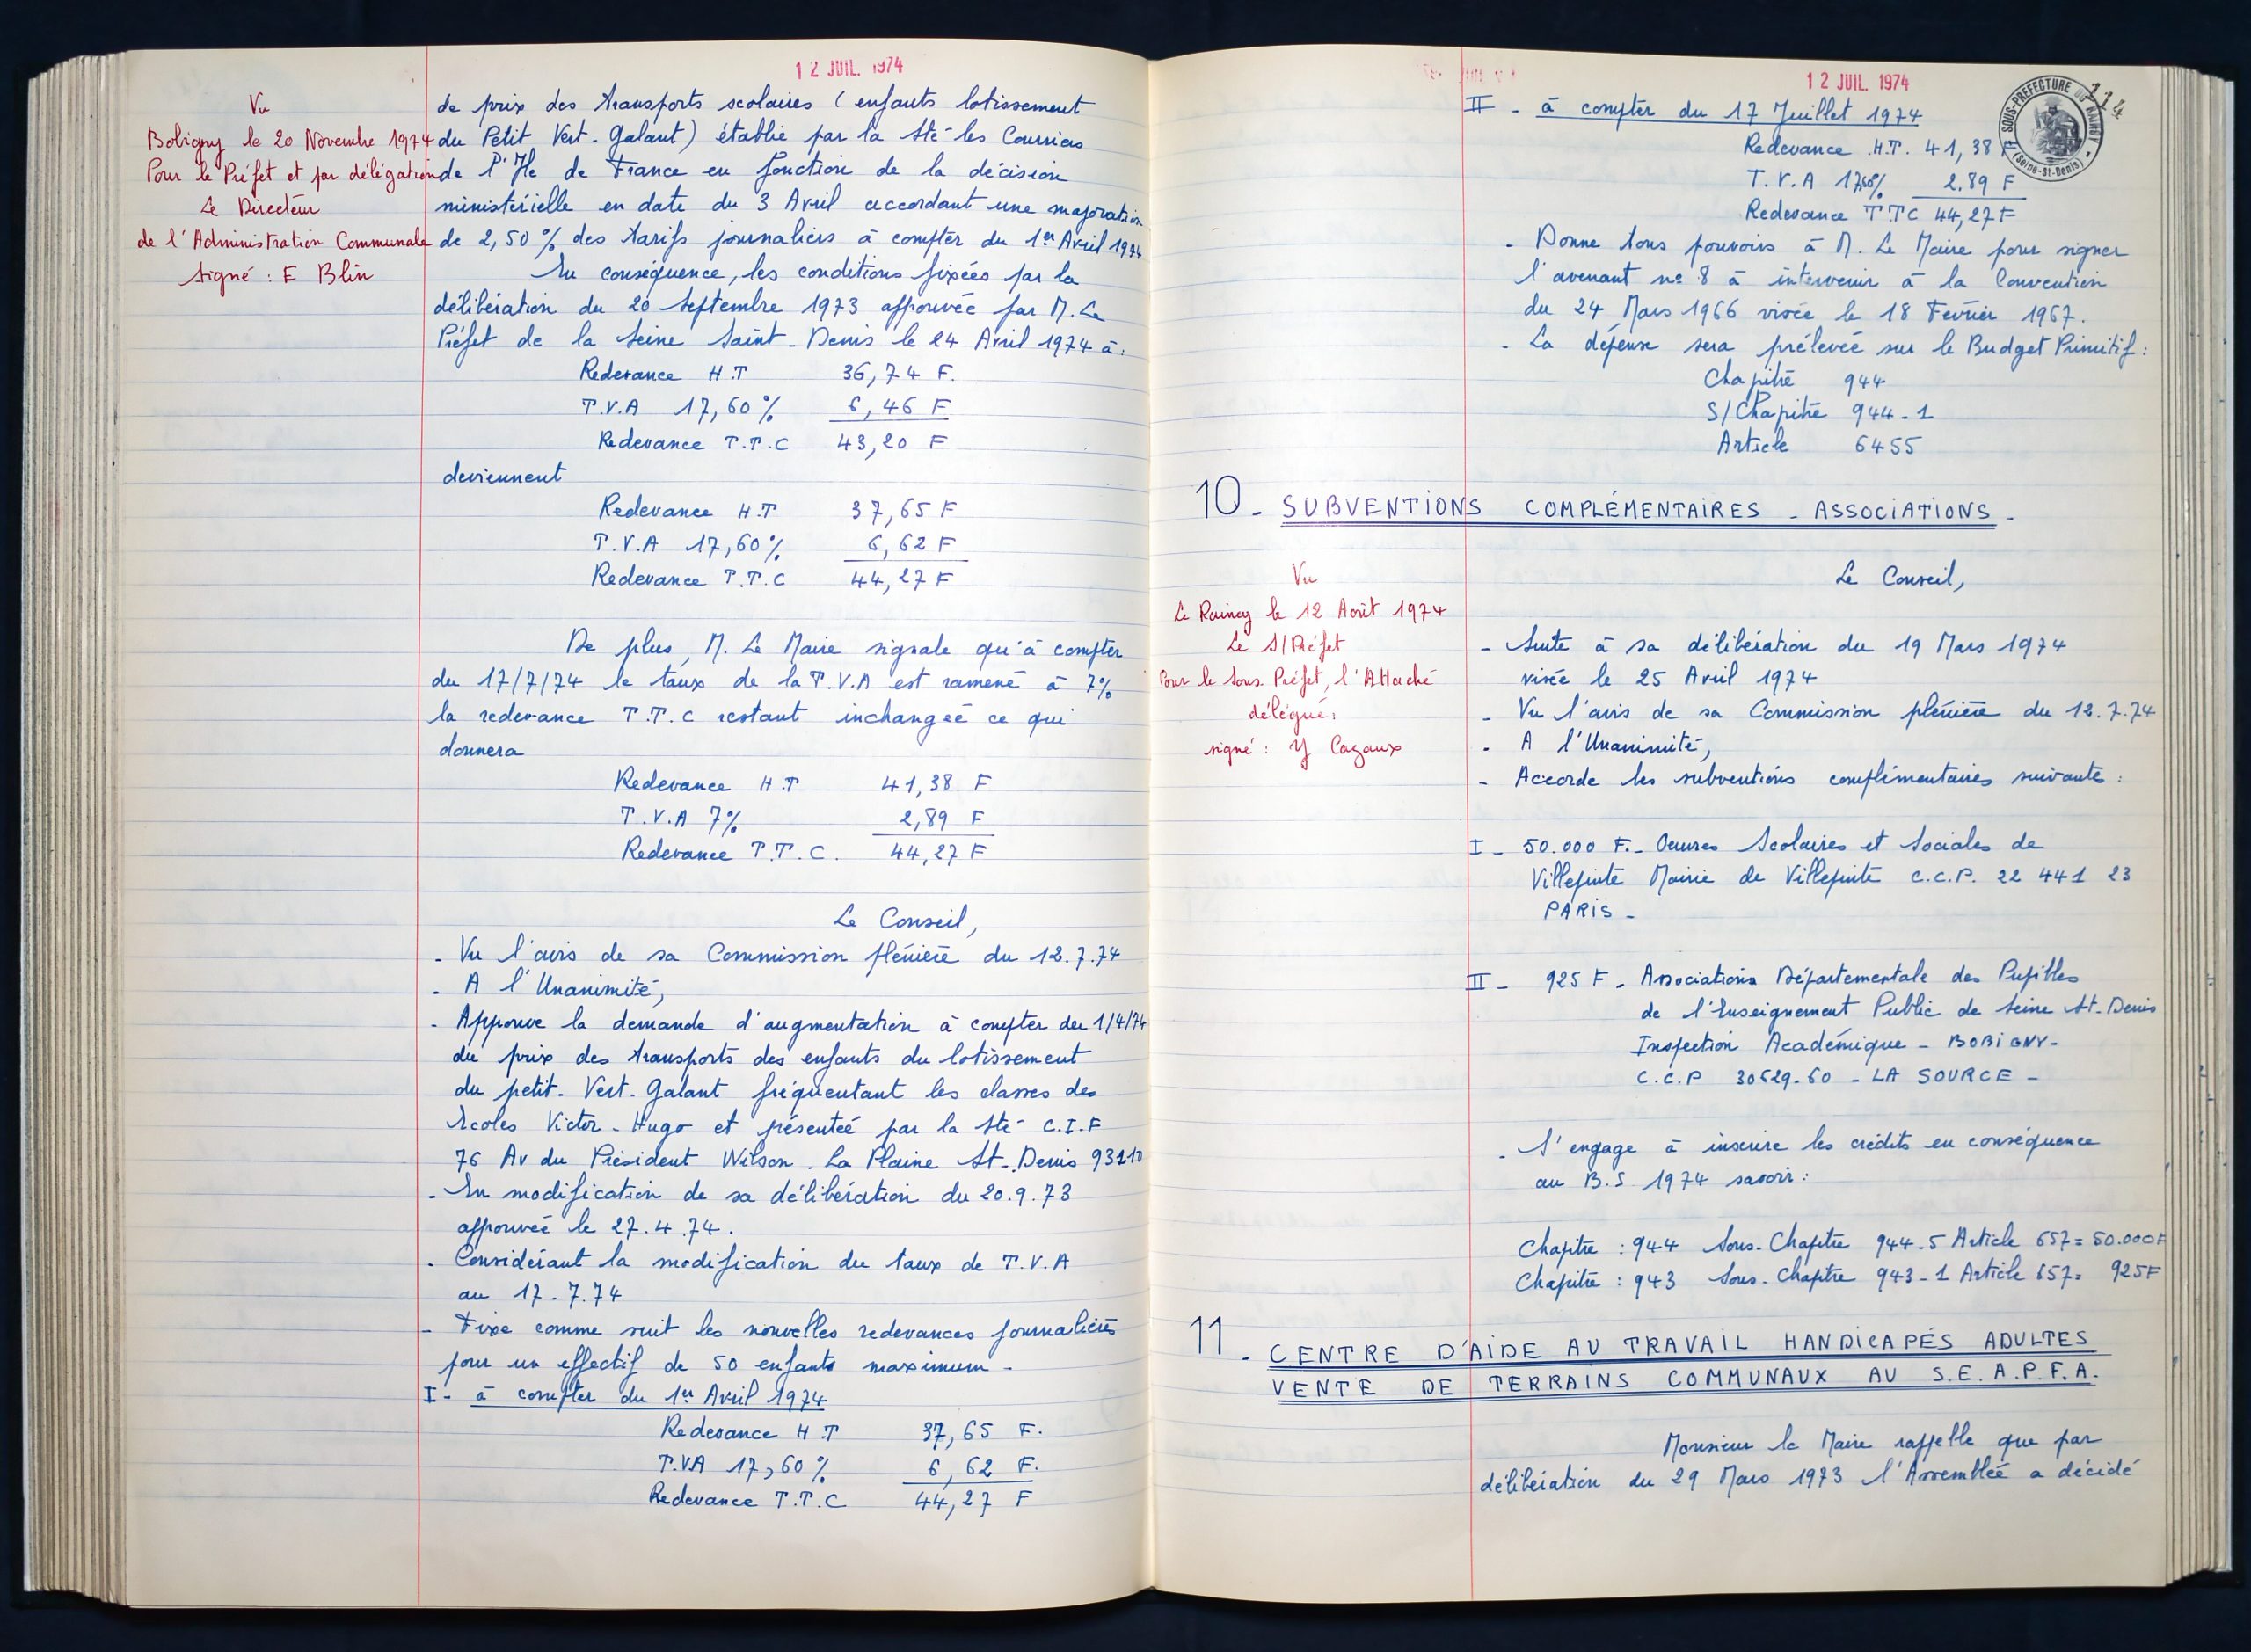 12 JUIL. 1974
Vu
Bobigny le 20 Novembre 1974
Pour le Préfet et par délégation
Le Directeur
de l'Administration Communale
Signé : E Blin
de prix des transports scolaires ( enfants lotissement
du Petit Vert-Galant) établie par la Sté les Courriers
de l'Ile de France en fonction de la décision
ministérielle en date du 3 Avril accordant une majoration
de 2,50 % des tarifs journaliers à compter du 1er Avril 1974
En conséquence, les conditions fixées par la
délibération du 20 Septembre 1973 approuvée par M. Le
Préfet de la Seine Saint-Denis le 24 Avril 1974 à :
Redevance H.T 36,74 F.
T.V.A 17,60 % 6,46 F
Redevance T.T.C 43,20 F
deviennent
Redevance H.T 37,65 F
T.V.A 17,60 % 6,62 F
Redevance T.T.C 44,27 F
De plus, M. Le Maire signale qu'à compter
du 17/7/74 le taux de la T.V.A est ramené à 7%
la redevance T.T.C restant inchangée ce qui
donnera
Redevance H.T 41,38 F
T.V.A 7% 2,89 F
Redevance T.T.C. 44,27 F
Le Conseil,
- Vu l'avis de sa Commission plénière du 12.7.74
- A l'Unanimité,
- Approuve la demande d'augmentation à compter du 1/4/74
du prix des transports des enfants du lotissement
du petit-Vert-Galant fréquentant les classes des
Ecoles Victor-Hugo et présentée par la Sté C.I.F
76 Av du Président Wilson. La Plaine St-Denis 93210
- En modification de sa délibération du 20.9.73
approuvée le 27.4.74.
- Considérant la modification du taux de T.V.A
au 17-7.74
- Fixe comme suit les nouvelles redevances journalières
pour un effectif de 50 enfants maximum -
I - à compter du 1er Avril 1974
Redevance H.T 37,65 F.
T.VA 17,60 % 6,62 F.
Redevance T.T.C 44,27 F
12 JUIL. 1974
SOUS-PREFECTURE DU RAINCY
(Seine-St-Denis)
114
II - à compter du 17 Juillet 1974
Redevance H.T. 41,38 F
T.V.A 17,60% 2,89 F
Redevance TTC 44,27 F
- Donne tous pouvoirs à M. Le Maire pour signer
l'avenant n° 8 à intervenir à la Convention
du 24 Mars 1966 visée le 18 Février 1967.
- La dépense sera prélevée sur le Budget Primitif :
Chapitre 944
S/Chapitre 944-1
Article 6455
10 - SUBVENTIONS COMPLÉMENTAIRES - ASSOCIATIONS -
Vu
Le Raincy le 12 Août 1974
Le S/Préfet
Pour le Sous-Préfet, l'Attaché
délégué :
signé : Y Cazaux
Le Conseil,
- Suite à sa délibération du 19 Mars 1974
visée le 25 Avril 1974
- Vu l'avis de sa Commission plénière du 12.7.74
- A l'Unanimité,
- Accorde les subventions complémentaires suivante :
I - 50.000 F. - Oeuvres Scolaires et Sociales de
Villepinte Mairie de Villepinte C.C.P. 22 441 23
PARIS -
II - 925 F - Associations Départementale des Pupilles
de l'Enseignement Public de Seine St-Denis
Inspection Académique - BOBIGNY -
C.C.P 30529-60 - LA SOURCE -
- S'engage à inscrire les crédits en conséquence
au B.S 1974 savoir :
Chapitre : 944 Sous-Chapitre 944-5 Article 657 = 50.000F
Chapitre : 943 Sous-Chapitre 943-1 Article 657 = 925F
11 - CENTRE D'AIDE AU TRAVAIL HANDICAPÉS ADULTES
VENTE DE TERRAINS COMMUNAUX AU S.E.A.P.F.A.
Monsieur le Maire rappelle que par
délibération du 29 Mars 1973 l'Assemblée a décidé